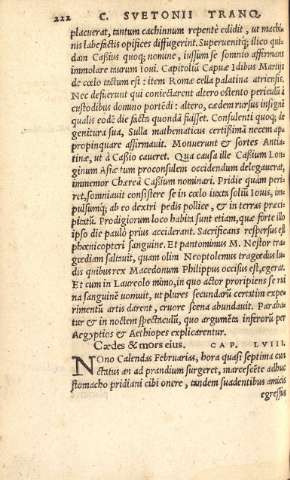 222 C. SVETONII TRANQ.
placuerat, tantum cachinnum repente edidit, ut machi-
nis labefactis opifices diffugerint. Superuenitq; illico qui-
dam Cassius quoq; nomine, iussum se somnio affirmans
immolare taurum Ioui. Capitolium Capuæ Idibus Martijs
de cœlo tactum est: item Romæ cella palatina atriensis.
Nec defuerunt qui coniectarent altero ostento periculum à
custodibus domino portēdi: altero, cædem rursus insignē
qualis eodē die facta quondā fuisset. Consulenti quoq; de
genitura sua, Sulla mathematicus certissimā necem ap-
propinquare affirmauit. Monuerunt & sortes Antia-
tinæ, ut à Cassio caueret. Qua causa ille Cassium Lon-
ginum Asiæ tum proconsulem occidendum delegauerat,
immemor Chæreā Cassium nominari. Pridie quàm peri-
ret, somniauit consistere se in cœlo iuxta solium Iouis, im-
pulsumq; ab eo dextri pedis pollice, & in terras præci-
pitatū. Prodigiorum loco habita sunt etiam, quæ forte illo
ipso die paulò prius acciderant. Sacrificans respersus est
phœnicopteri sanguine. Et pantomimus M. Nestor tra-
gœdiam saltauit, quam olim Neoptolemus tragœdus lu-
dis quibus rex Macedonum Philippus occisus est, egerat.
Et cum in Laureolo mimo, in quo actor proripiens se rui-
na sanguinē uomuit, ut plures secundarū certatim expe-
rimentū artis darent, cruore scena abundauit. Paraba-
tur & in noctem spectaculū, quo argumēta inferorū per
Aegyptios & Aethiopes explicarentur.
Cædes & mors eius. CAP. LVIII.
NOno Calendas Februarias, hora quasi septima cun-
ctatus an ad prandium surgeret, marcescēte adhuc
stomacho pridiani cibi onere, tandem suadentibus amicis
egressus